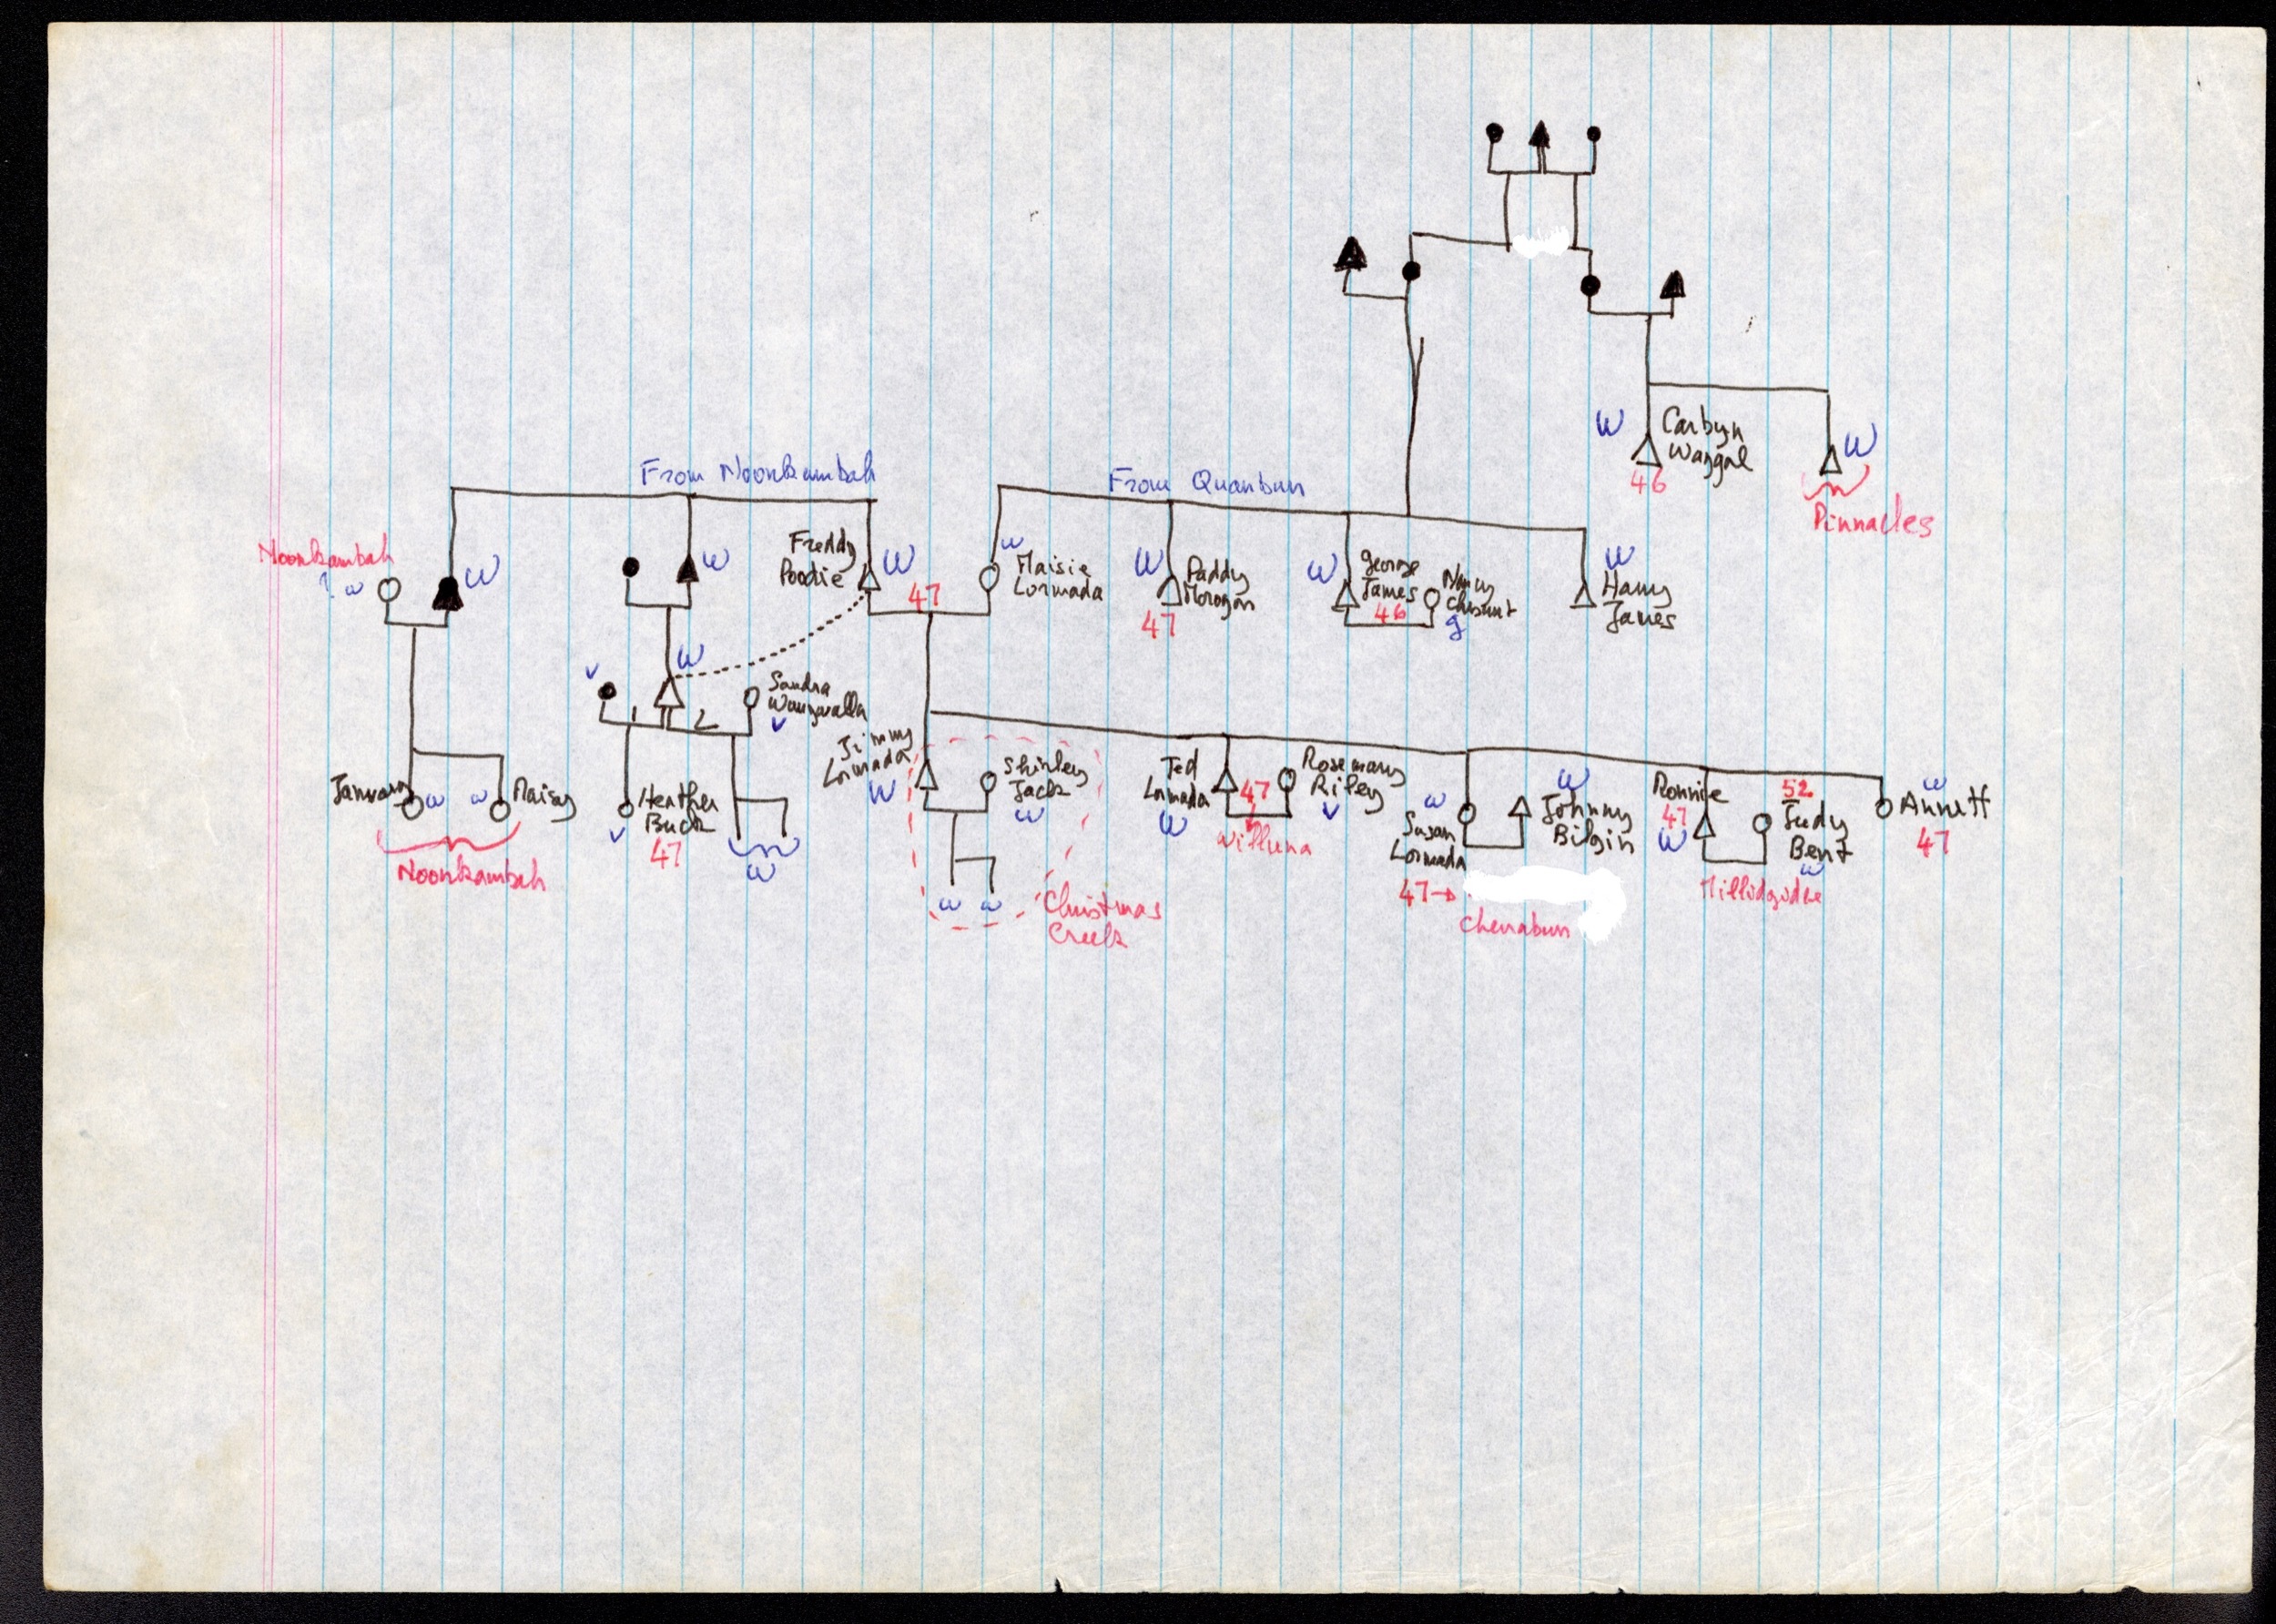 W
Carbyn
Wangal
46
W
Pinnacles
From Noonkambah
From Quanbun
Noonkambah
? w
W
W
Freddy
Poodie
W
47
w
Maisie
Lormada
W
Paddy
Morogan
47
W
George
James
46
Nancy
Chesnut
g
W
Harry
James
W
v
1
2
Sandra
v
Jimmy
Lormada
W
Shirley
Jack
w
w w
Christmas
Creek
January
w
w
Maisy
Noonkambah
Heather
Buck
v
47
w
Ted
Lormada
W
47
Willuna
Rosemary
Riley
v
w
Susan
Lormada
47→
Cherrabun
W
Johnny
Bilgin
Ronnie
47
W
52
Judy
Bent
w
Millidgidee
w
Annett
47